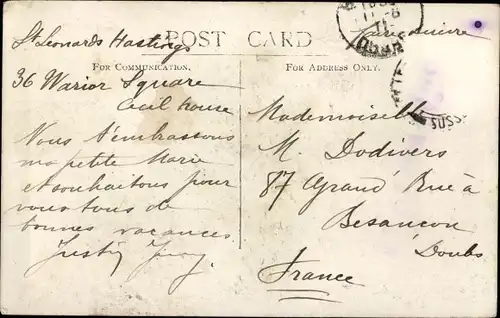 St Leonards Hastings
36 Warior Square
Cecil house
POST CARD
FOR COMMUNICATION.
FOR ADDRESS ONLY.
Nous t'embrassons
ma petite Marie
et souhaitons pour
vous tous de
bonnes vacances
Mademoiselle
M. Dodivers
87 Grand' Rue à
Besançon
Doubs
France
SUSS